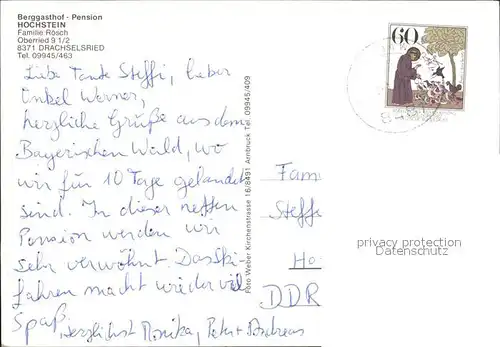 Berggasthof - Pension
HOCHSTEIN
Familie Rösch
Oberried 9 1/2
8371 DRACHSELSRIED
Tel. 09945/463
Liebe Tante Steffi, lieber
Onkel Werner,
herzliche Grüße aus dem
Bayerischen Wald, wo
wir für 10 Tage gelandet
sind. In dieser netten
Pension werden wir
sehr verwöhnt. Das Ski-
fahren macht wieder viel
Spaß.
Herzlichst Monika, Peter + Andreas
Foto Weber Kirchenstrasse 16/8491 Arnbruck Tel. 09945/409
60
Fam
Steffe
Ho
DDR
privacy protection
Datenschutz